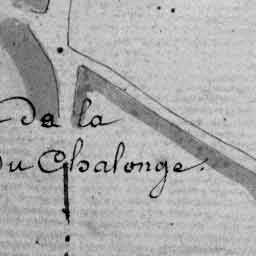 de la
du Chalonge.